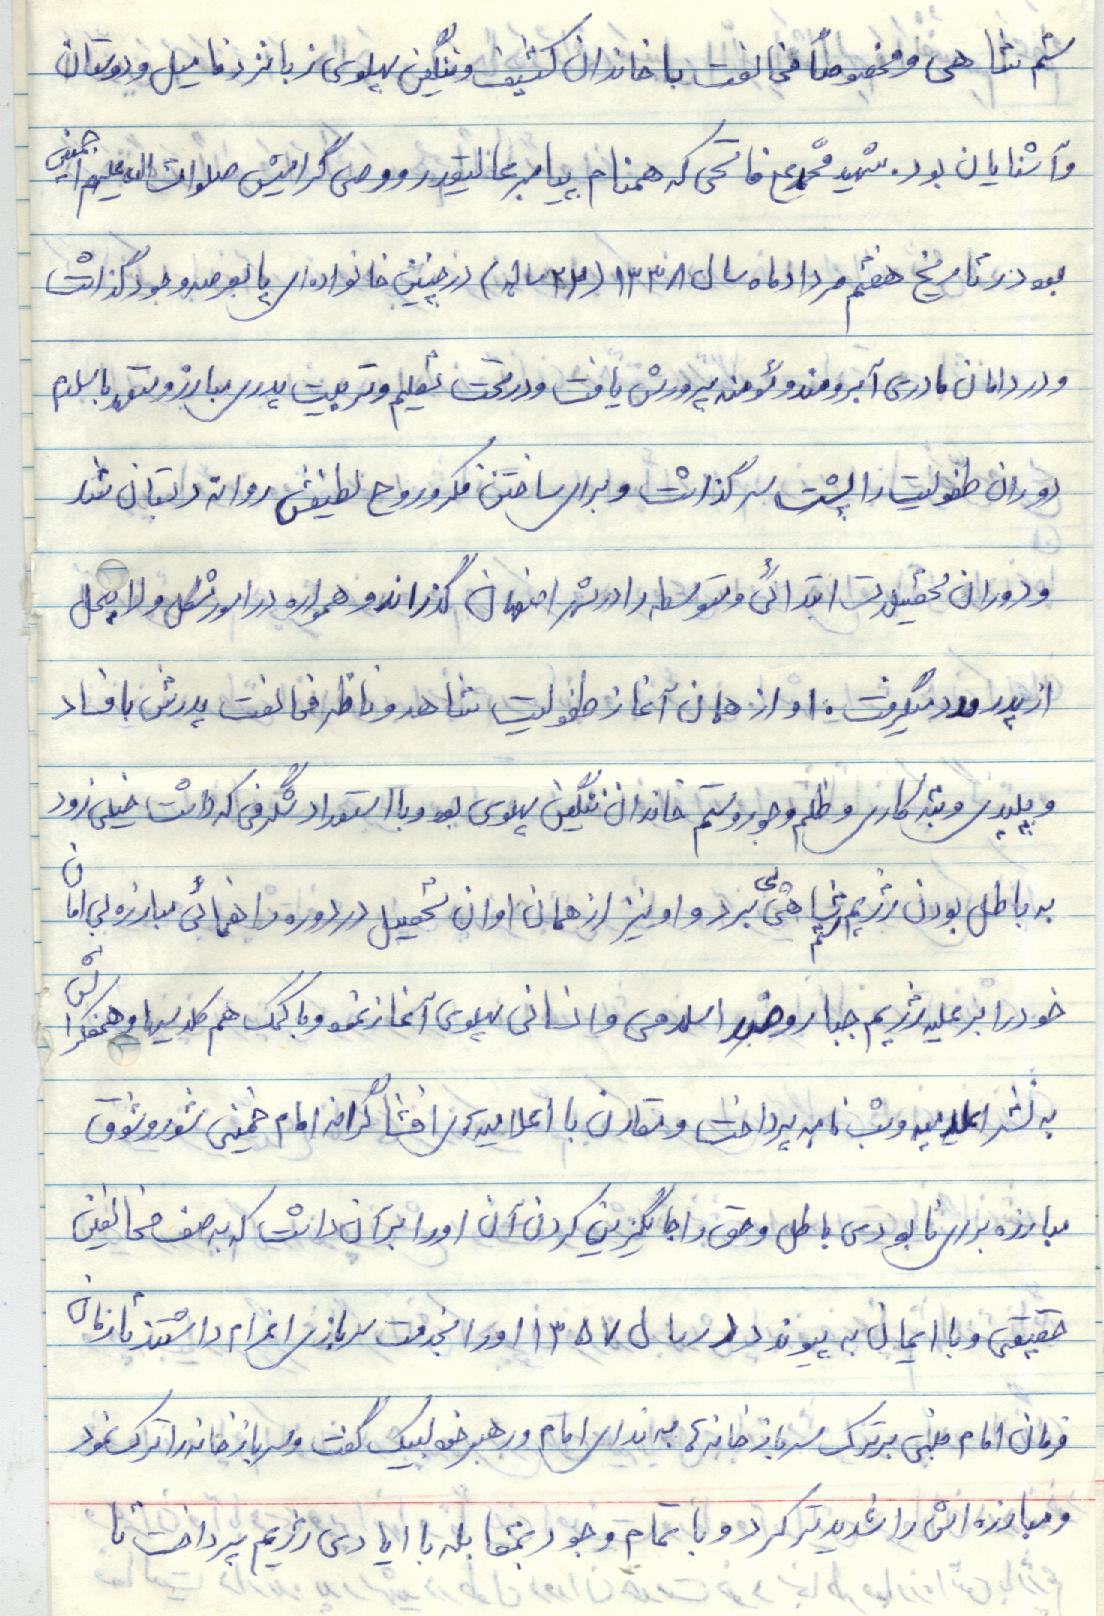 ستم شاهی و مخصوصاً مخالفت با خاندان کثیف و ننگین پهلوی زبانزد فامیل و دوستان
و آشنایان بود. شهید محمدعلی فاتحی که همنام پیامبر عالیقدر و وصی گرامیش صلوات الله علیهم اجمعین
بود در تاریخ هفتم مرداد ماه سال ۱۳۳۸ (۲۲ ساله) در چنین خانواده‌ای پا بعرصه وجود گذاشت
و در دامان مادری آبرومند و مؤمنه پرورش یافت و در تحت تعلیم و تربیت پدری مبارز و متعهد باسلام
دوران طفولیت را پشت سر گذاشت و برای ساختن فکر و روح لطیفش روانه دبستان شد
و دوران تحصیلات ابتدائی و متوسطه را در شهر اصفهان گذراند و همواره در امور مشکل و لاینحل
از پدر مدد میگرفت. او از همان آغاز طفولیت شاهد و ناظر مخالفت پدرش با فساد
و پلیدی و تبهکاری و ظلم و جور و ستم خاندان ننگین پهلوی بود و با استعداد شگرفی که داشت خیلی زود
به باطل بودن رژیم ستم شاهی پی برد و او نیز از همان اوان تحصیل در دوره راهنمائی مبارزه بی امان
خود را بر علیه رژیم جبار و ضد اسلامی و انسانی پهلوی آغاز نمود و با کمک هم کلاسیها و همفکرانش
به نشر اعلامیه و شب نامه پرداخت و تقارن با اعلامیه‌های افشاگرانه امام خمینی شور و شوق
مبارزه برای نابودی باطل و حق را جایگزین کردن آن او را بر آن داشت که به صف مخالفین
حقیقی و با ایمان به پیوندد در سال ۱۳۵۷ او را بخدمت سربازی اعزام داشتند تا زمان
فرمان امام مبنی بر ترک سربازخانه‌ها به ندای امام و رهبر خود لبیک گفت و سربازخانه را ترک نمود
و مبارزه‌اش را شدیدتر کرد و با تمام وجود بمقابله با ایادی رژیم پرداخت تا